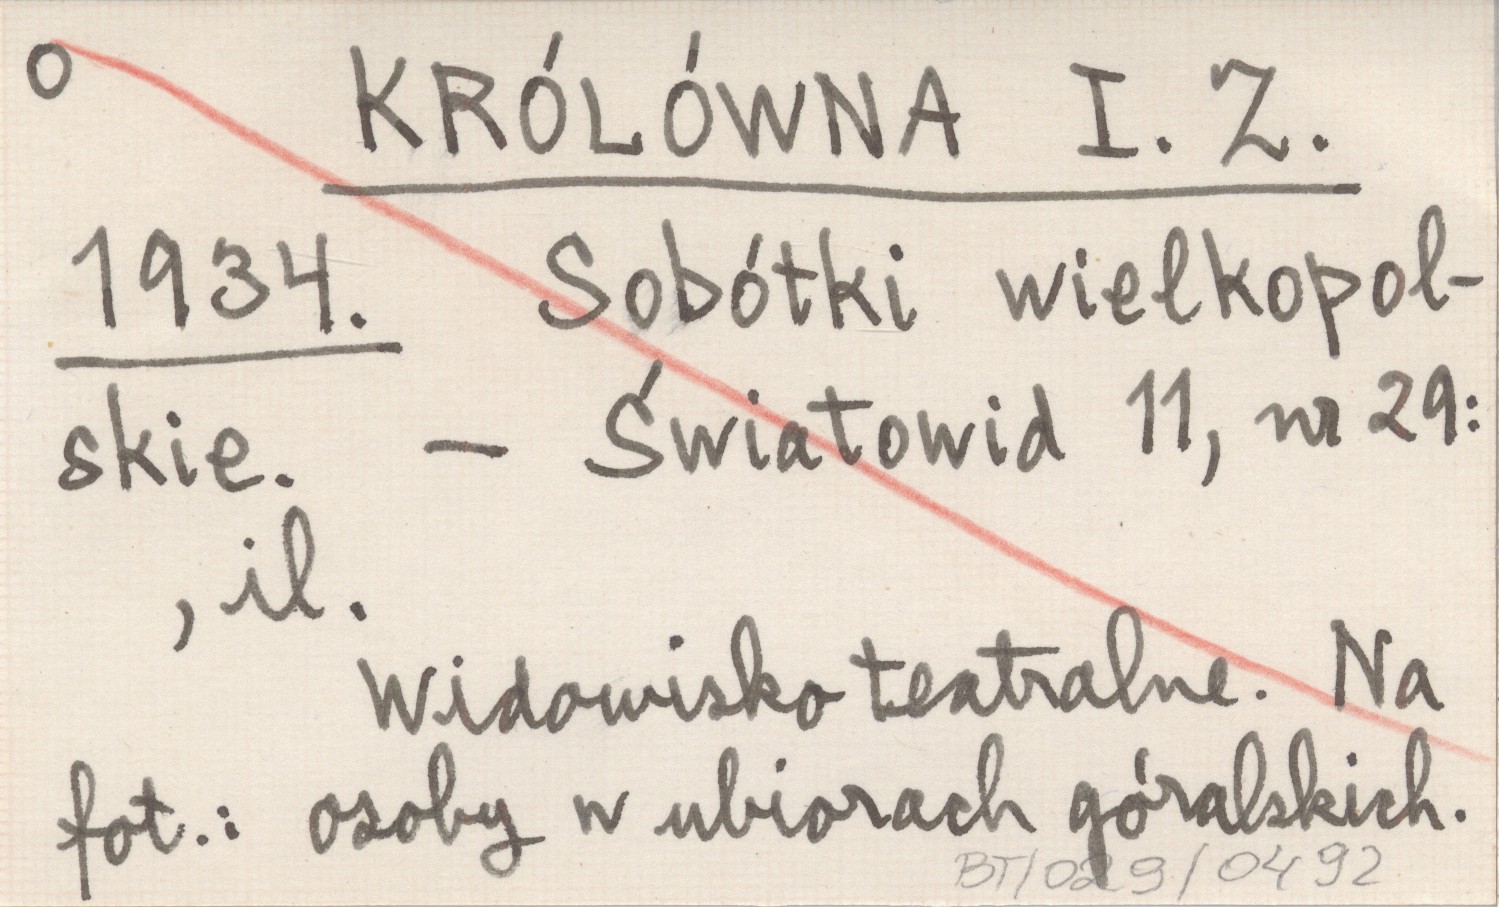 O KRÓLÓWNA I. Z.
1934. Sobótki wielkopol-
skie. – Światowid 11, nr 29:
, il.
Widowisko teatralne. Na
fot.: osoby w ubiorach góralskich.
BT/029/0492